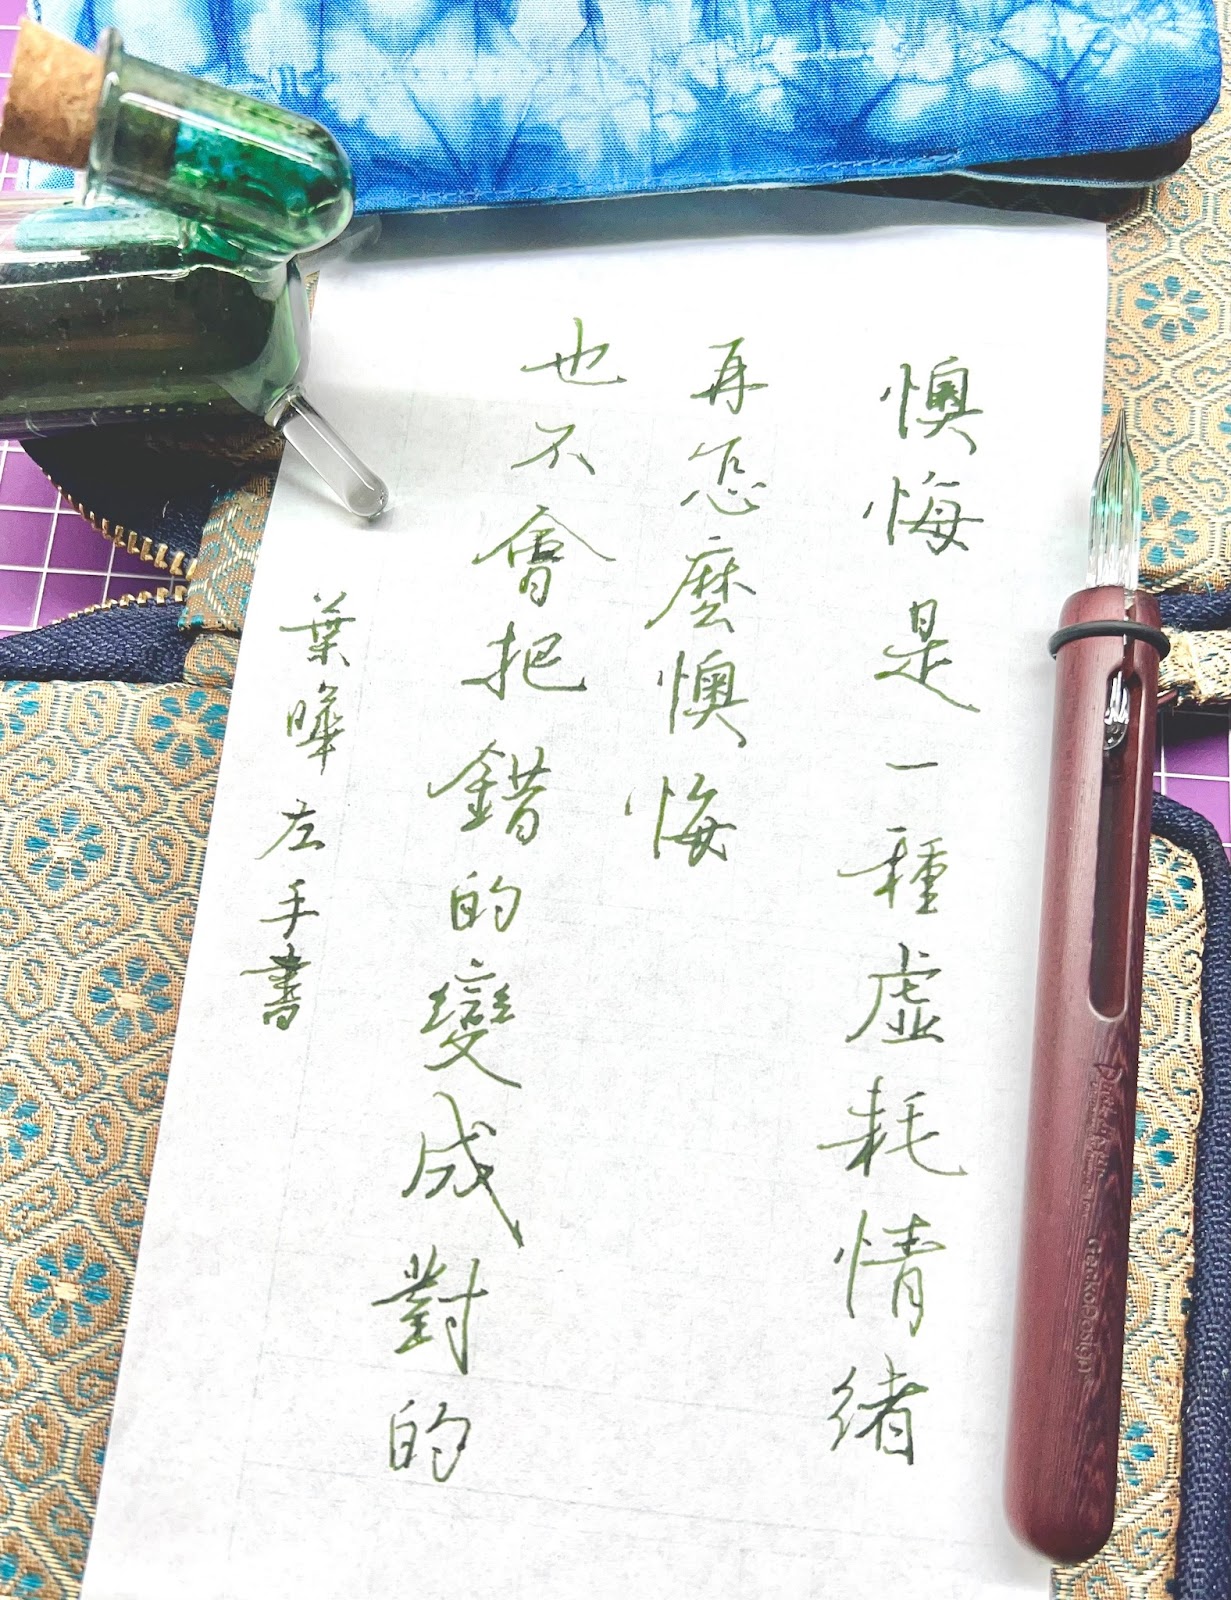 懊悔是一種虛耗情緒
再怎麼懊悔
也不會把錯的變成對的
葉曄左手書